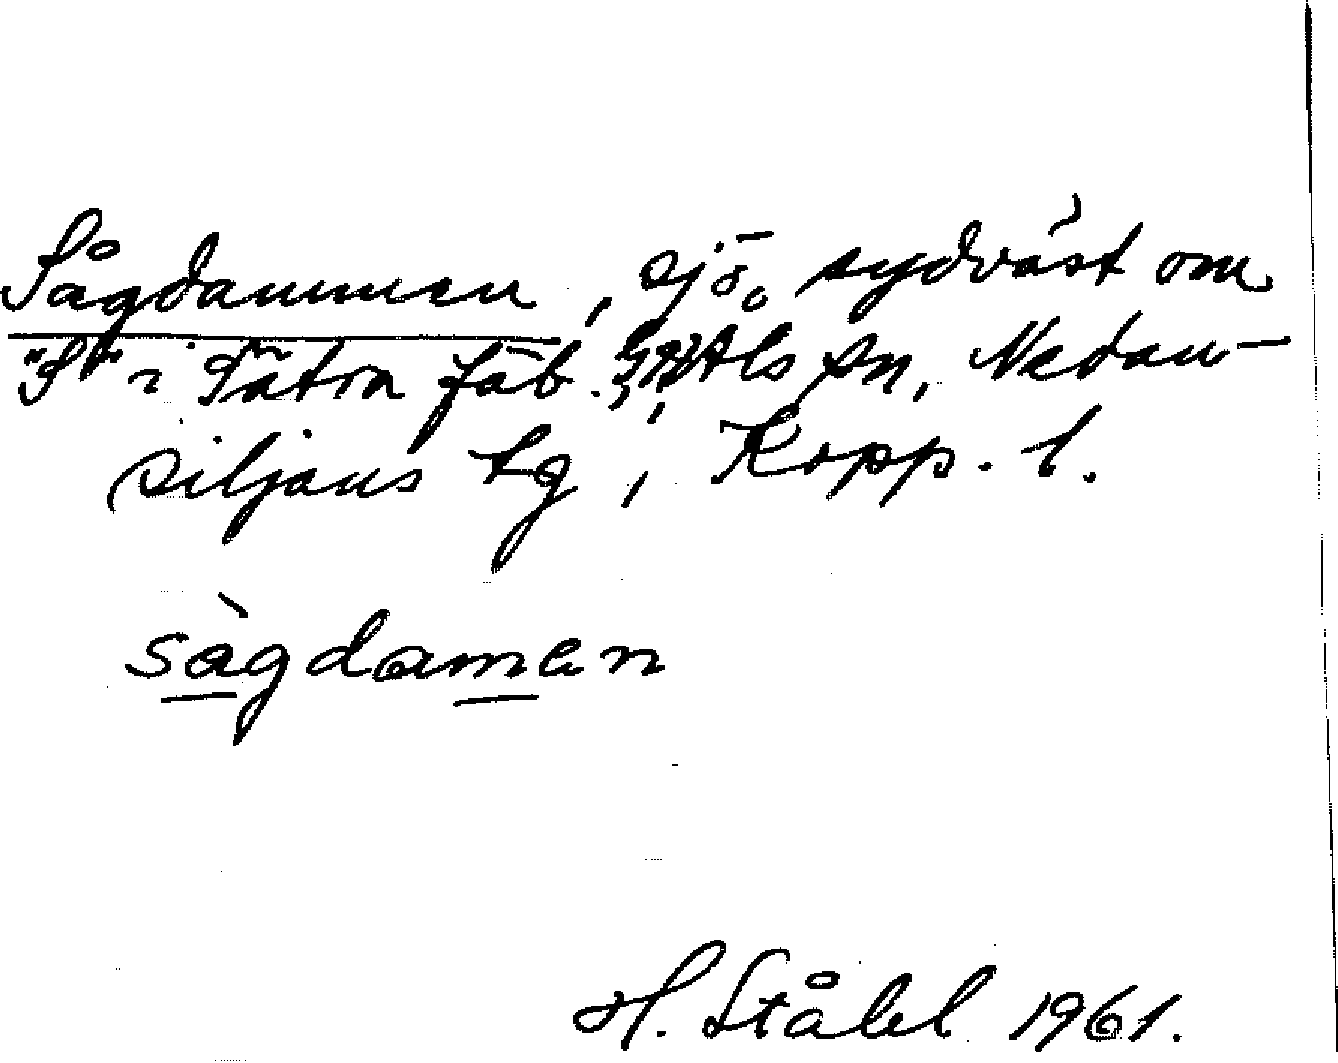 Sågdammen, sjö, sydväst om
"S" i Säter fäb. Åls sn, Nedan-
siljans tg, Kopp. l.
sàgdamen
H. Ståhl 1961.